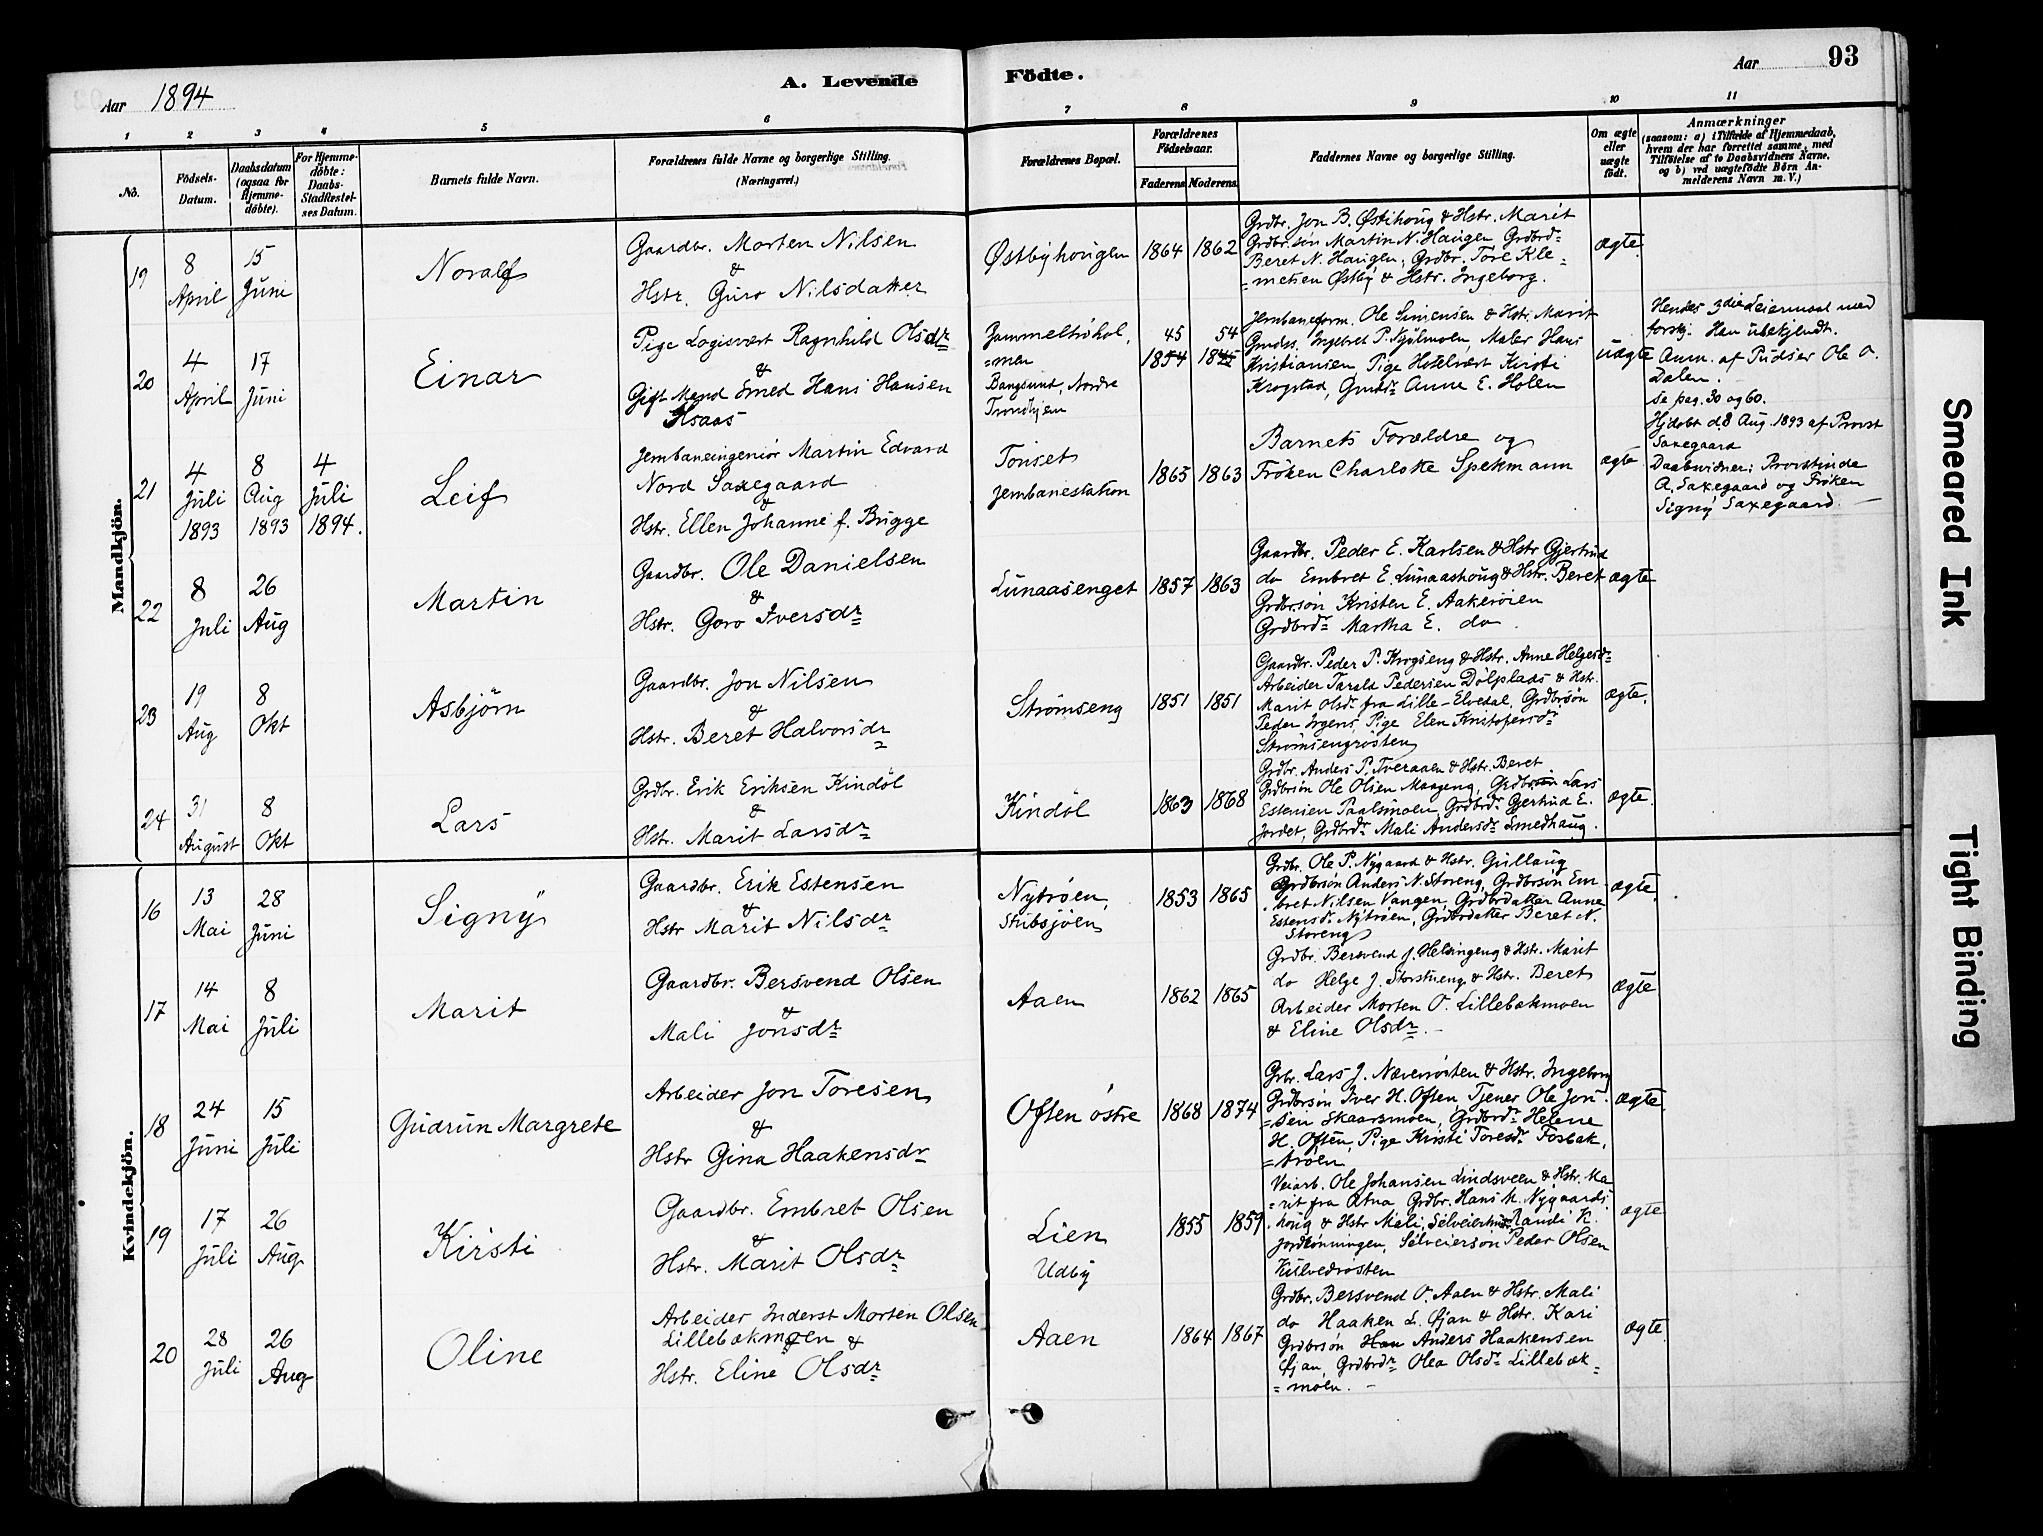 Aar 1894
A. Levende
Födte.
Aar
93
1
2
3
4
5
6
7
8
9
10
11
No.
Födsels-
Datum.
Daabsdatum
(ogsaa for
Hjemme-
döbte).
For Hjemme-
döbte:
Daabs-
Stadfæstel-
ses Datum.
Barnets fulde Navn.
Forældrenes fulde Navne og borgerlige Stilling.
(Næringsvei.)
Forældrenes Bopæl.
Forældrenes
Födselsaar.
Faderens
Moderens
Faddernes Navne og borgerlige Stilling.
Om ægte
eller
uægte
födt.
Anmærkninger
(saasom: a) i Tilfælde af Hjemmedaab,
hvem der har forrettet samme, med
Tilföielse af to Daabsvidners Navne,
og b) ved uægtefödte Börn An-
melderens Navn m. V.)
Mandkjön.
19
8
April
15
Juni
Noralf
Gaardbr. Morten Nilsen
&
Hstr. Guro Nilsdatter
Østbyhaugen
1864
1862
Grdbr. Jon B. Østihoug & Hstr. Marit
Grdbr.søn Martin N. Haugen, Grdbrd.
Beret N. Haugen, Grdbr. Tore Kle=
=metsen Østby & Hstr. Ingeborg.
ægte
20
4
April
17
Juni
Einar
Pige Logisvært Ragnhild Olsdr
&
Gift Mand Smed Hans Hansen
Hsaas
Gammeltrøhol,
=men
Bangsund, Nordre
Trondhjem
45
1854
54
1845
Jernbaneform. Ole Simensen & Hstr. Marit
Grndes. Ingebret P. Kjølmoen, Maler Hans
Kristiansen, Pige Hotelvært Kirsti
Krogstad, Grmdr Anne E. Holen
uægte
Hendes 3die Leiermaal med
forskj. Han ubekjendt.
Anm. af Pudser Ole O.
Dalen.
se pag. 30 og 60.
21
4
Juli
1893
8
Aug
1893
4
Juli
1894.
Leif
Jernbaneingeniør Martin Edvard
Nord Saxegaard
&
Hstr. Ellen Johanne f. Brügge
Tønset
Jernbanestation
1865
1863
Barnets Forældre og
Frøken Charlotte Spekmann
ægte
Hjdøbt d. 8 Aug. 1893 af Provst
Saxegaard
Daabsvidner: Provstinde
A. Saxegaard og Frøken
Signy Saxegaard.
22
8
Juli
26
Aug
Martin
Gaardbr. Ole Danielsen
&
Hstr. Goro Iversdr
Lunaasenget
1857
1863
Gaardbr. Peder E. Karlsen & Hstr Gjertrud
do Embret E. Lunaashoug & Hstr. Beret
Grdbrsøn Kristen E. Aakerøien
Grdbrdr Martha E. do.
ægte
23
19
Aug
8
Okt
Asbjørn
Gaardbr. Jon Nilsen
&
Hstr. Beret Halvorsdr
Strømseng
1851
1851
Gaardbr. Peder P. Krogseng & Hstr. Anne Helgesdr
Arbeider Tarald Pedersen Dølplads & Hstr.
Marit Olsdr fra Lille-Elvedal, Grdbrsøn
Peder Irgens, Pige Elen Kristofersdr
Strømsengrøsten
ægte.
24
31
August
8
Okt
Lars
Grdbr. Erik Eriksen Kindøl
&
Hstr. Marit Larsdr
Kindøl
1863
1868
Grdbr. Anders P. Tveraaen & Hstr. Beret
Grdbrsøn Ole Olsen Moseng, Grdbrsøn Lars
Estensen Paalsmoen, Grdbrdr Gjertrud E.
Jordet, Grdbrdr Mali Andersdr Smedhaug.
ægte.
Kvindekjön.
16
13
Mai
28
Juni
Signy
Gaardbr. Erik Estensen
&
Hstr Marit Nilsdr
Nytrøen,
Stubsjøen
1853
1865
Grdbr. Ole P. Nygaard & Hstr. Gullaug
Grdbrsøn Anders N. Storeng, Grdbrsøn Em-
bret Nilsen Vangen, Grdbrdatter Anne
Estensdr Nytrøen, Grdbrdatter Beret N.
Storeng
ægte.
17
14
Mai
8
Juli
Marit
Gaardbr. Bersvend Olsen
&
Mali Jonsdr
Aaen
1862
1865
Grdbr. Bersvend J. Helsingeng & Hstr. Marit
do Helge J. Storstueng & Hstr. Beret
Arbeider Morten O. Lillebakmoen
& Eline Olsdr.
ægte
18
24
Juni
15
Juli
Gudrun Margrete
Arbeider Jon Toresen
&
Hstr Gina Haakensdr
Often østre
1868
1874
Grbr. Lars J. Næverrøsten & Hstr. Ingeborg
Grdbrsøn Iver H. Often Tjener Ole Jon=
=sen Skaarsmoen, Grdbrdr Helene
H. Often, Pige Kristi Toresdr Fosbak,
=trøen
ægte.
19
17
Juli
26
Aug
Kirsti
Gaardbr. Embret Olsen
&
Hstr. Marit Olsdr
Lien
Udby
1855
1859
Veiarb. Ole Johansen Lindsveen & Hstr. Ma
=rit fra Atna Grdbr. Hans M. Nygaards
houg & Hstr Mali, Selveierhus. Randi K.
Jordlønningen, Selveiersøn Peder Olsen
Kulvedrøsten
ægte
20
28
Juli
26
Aug
Oline
Arbeider Inderst Morten Olsen
Lillebakmoen &
Hstr. Eline Olsdr
Aaen
1864
1867
Grdbr. Bersvend O. Aaen & Hstr. Mali
do Haaken L. Øjan & Hstr. Kari
Grdbrsøn Anders Haakensen
Øjan, Grdbrdr Olea Olsdr Lillebæk=
=moen.
ægte
Smeared Ink
Tight Binding